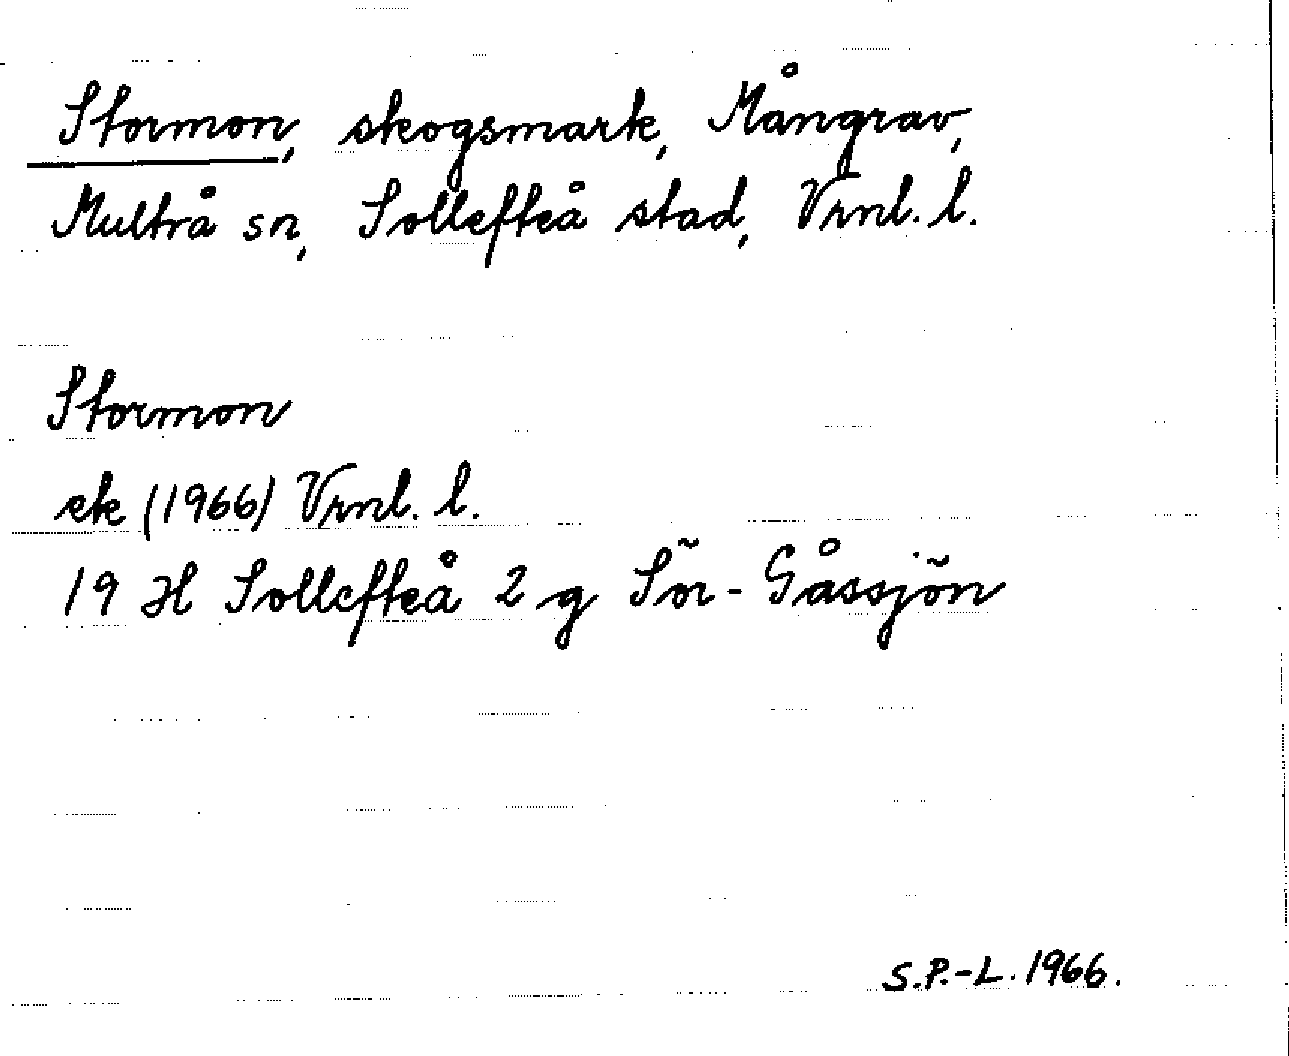 Stormon, skogsmark, Mångrav,
Multrå sn, Sollefteå stad, Vrnl. l.
Stormon
ek (1966) Vrnl. l.
19 H Sollefteå 2 g Sör-Gåssjön
S.P.-L. 1966.